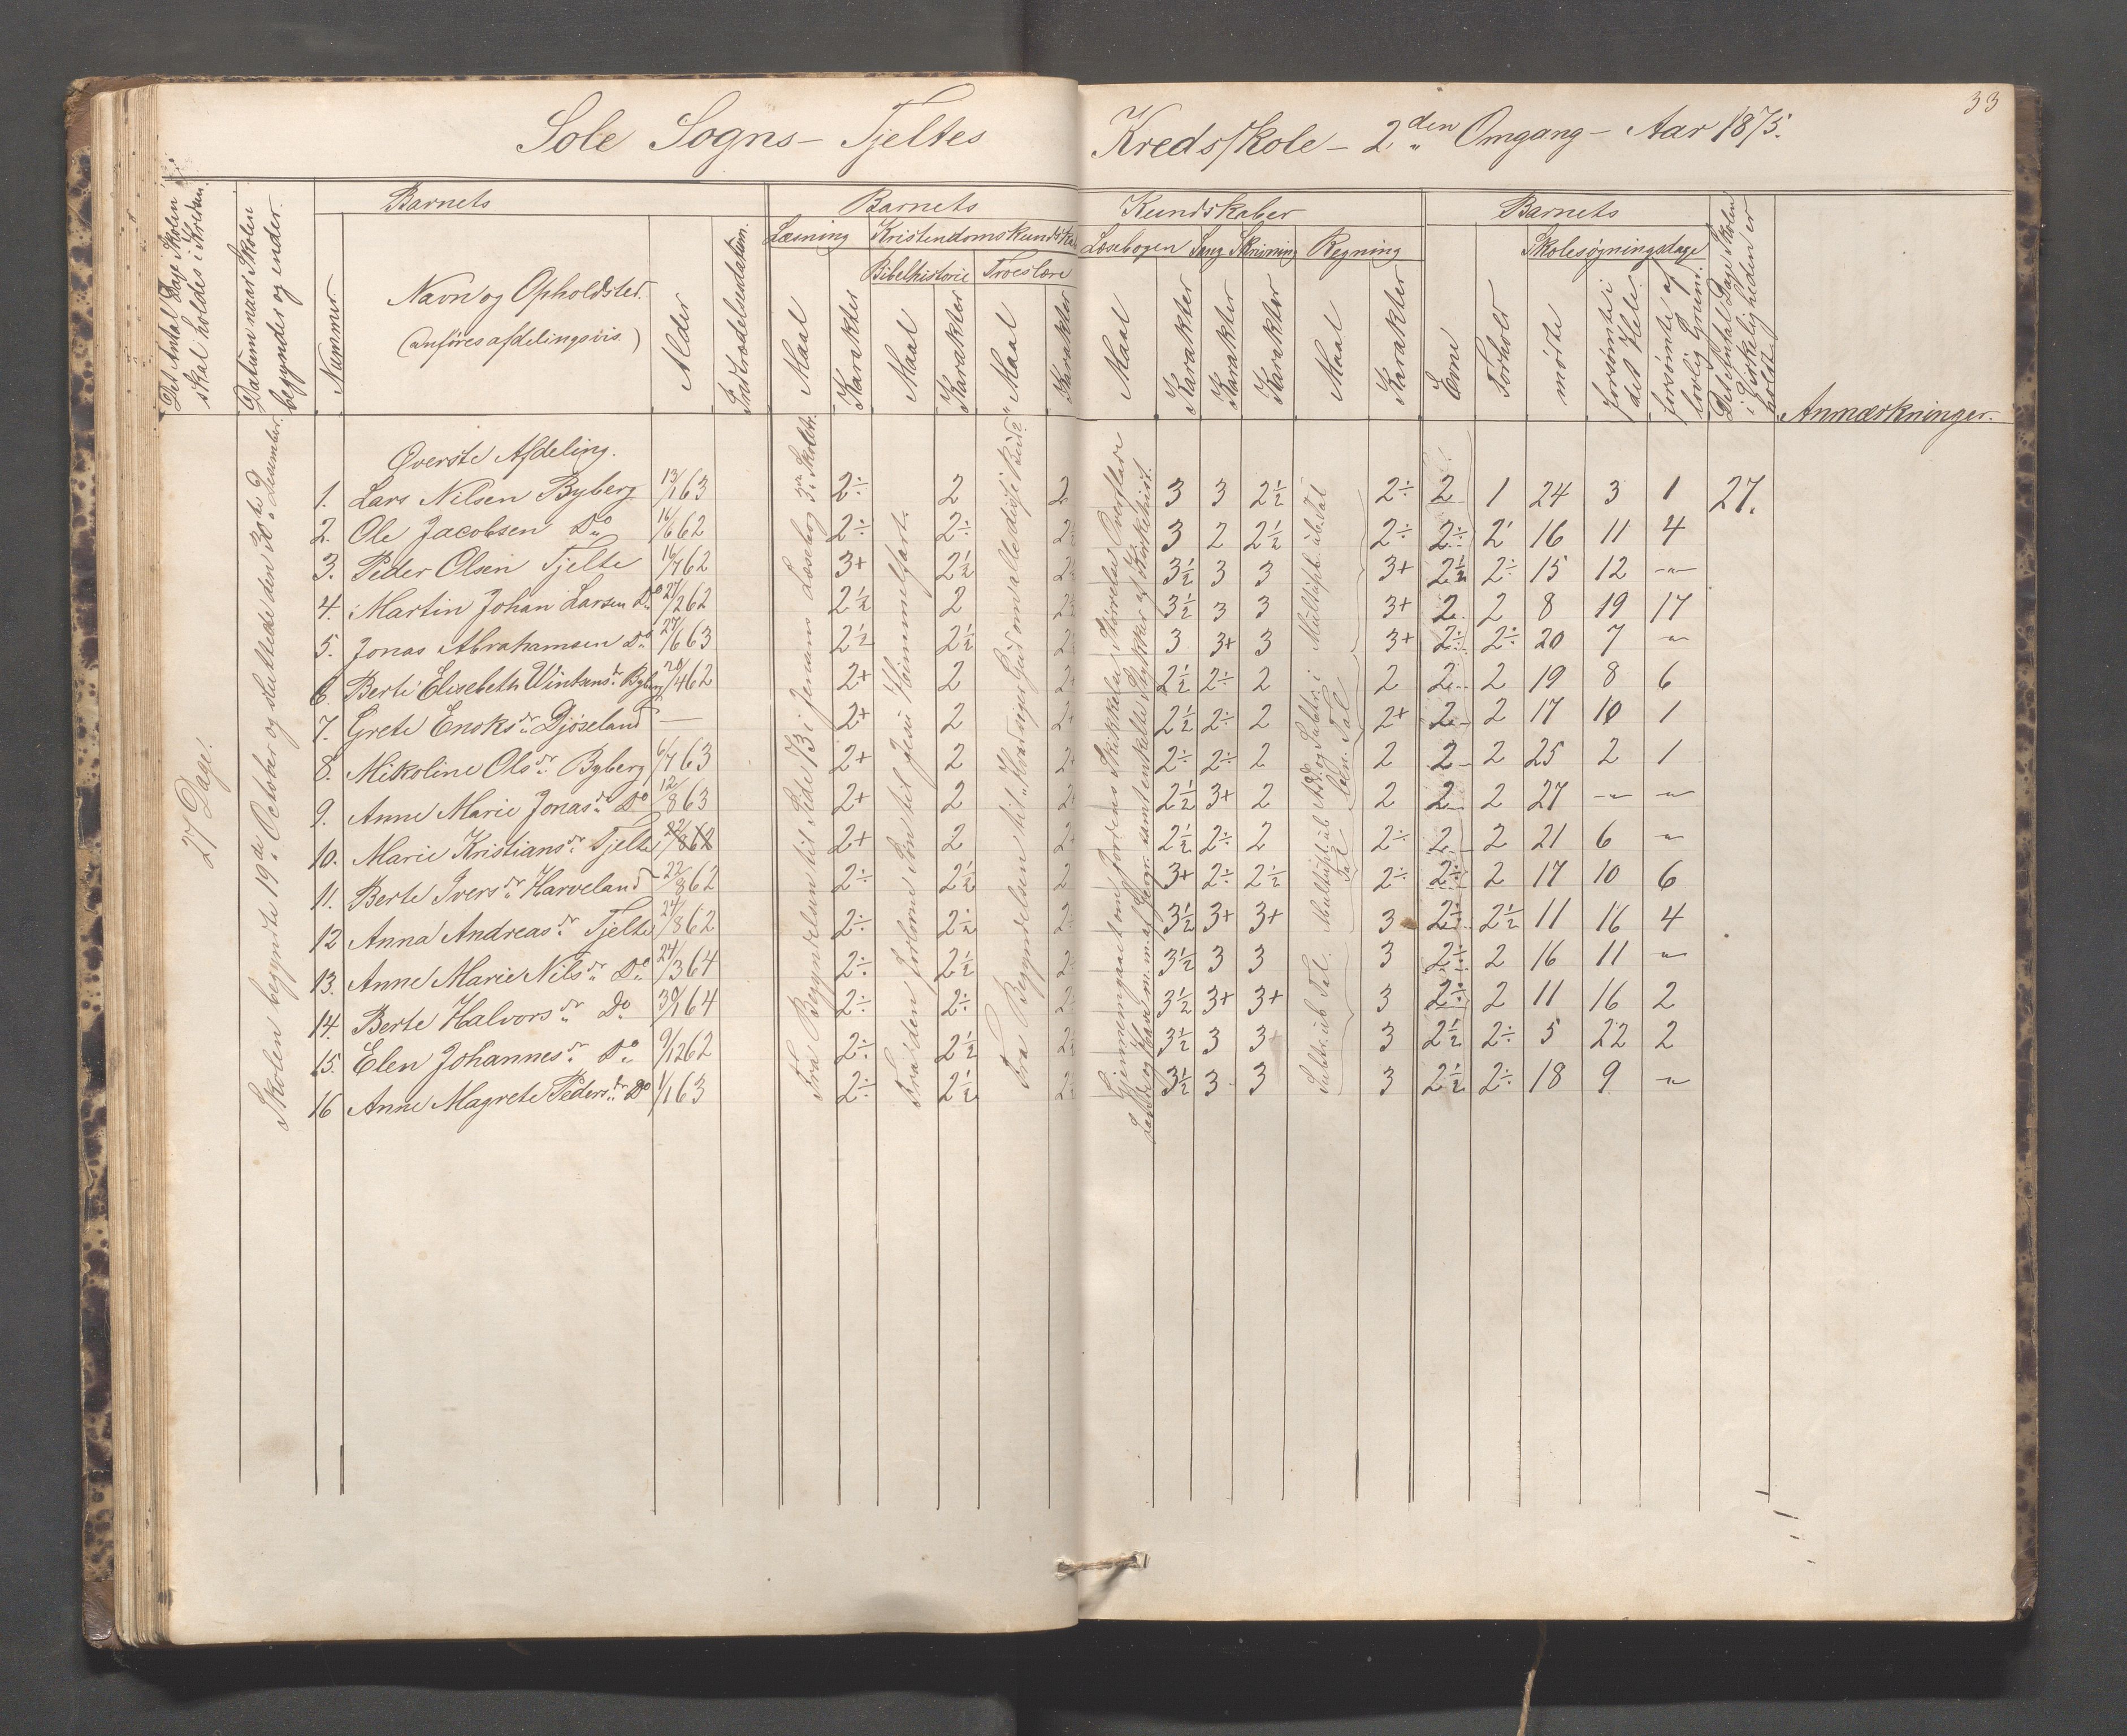 33
Sole Sogns - Tjeltes Kredsskole - 2den Omgang - Aar 1875.
Det Antal Dage Skolen skal holdes i Kredsen.
Datum naar Skolen begyndes og ender.
Barnets
Nummer
Navn og Opholdsted. (anføres afdelingsvis.)
Alder
Indtrædelsesdatum.
Barnets Kundskaber
Læsning
Maal
Karakter
Kristendomskundskab
Bibelhistorie
Maal
Karakter
Troeslære
Maal
Karakter
Læsebogen
Maal
Karakter
Sang
Karakter
Skrivning
Karakter
Regning
Maal
Karakter
Barnets
Evne
Forhold
Skolesøgningsdage
mødte
forsømte i det Hele.
forsømte af lovlig Grund.
Det Antal Dage Skolen i Virkeligheden er holdt
Anmærkninger.
27 Dage.
Skolen begyndte 19de October og sluttede den 3die Desember.
Øverste Afdeling.
1. Lars Nilsen Byberg 13/1 63 2÷ 2 2 3 3 2½ 2÷ 2 1 24 3 1 27.
2. Ole Jacobsen Do 16/6 62 2÷ 2÷ 2÷ 3 2 2½ 2÷ 2÷ 2 16 11 4
3. Peder Olsen Tjelte 16/7 62 3+ 2½ 2½ 3½ 3 3 3+ 2½ 2÷ 15 12 -"-
4. Martin Johan Larsen Do 27/2 62 2½ 2 2½ 3½ 3 3 3+ 2 2 8 19 17
5. Jonas Abrahamsen Do 27/6 63 2½ 2½ 2÷ 3 3+ 3 3+ 2÷ 2÷ 20 7 -"-
6. Berte Elisebeth Wintsensdr Byberg 20/4 62 2+ 2 2+ 2½ 2÷ 2 2 2 2 19 8 6
7. Grete Enoksdr Djøseland — 2+ 2 2+ 2½ 2÷ 2 2+ 2 2 17 10 1
8. Nikoline Olsdr Byberg 6/7 63 2+ 2 2+ 2÷ 2÷ 2 2 2 2 25 2 1
9. Anne Marie Jonasdr Do 12/8 63 2+ 2 2+ 2½ 3+ 2 2 2 2 27 -"- -"-
10. Marie Kristiansdr Tjelte 2+ 2 2+ 2½ 2÷ 2 2÷ 2 2 21 6 -"-
11. Berte Iversdr Harveland 22/8 62 2÷ 2½ 2 3+ 2÷ 2½ 2÷ 2÷ 2 17 10 6
12 Anna Andreasdr Tjelte 24/8 62 2÷ 2½ 2÷ 3½ 3+ 3+ 3 2÷ 2½ 11 16 4
13. Anne Marie Nilsdr Do 24/3 64 2÷ 2½ 2÷ 3½ 3 3 3 2÷ 2 16 11 -"-
14. Berte Halvorsdr Do 30/1 64 2÷ 2÷ 2÷ 3½ 3+ 3+ 3 2÷ 2 11 16 2
15. Elen Johannesdr Do 9/12 62 2÷ 2½ 2½ 3½ 3 3 3 2½ 2÷ 5 22 2
16 Anne Magrete Pedersdr Do 1/1 63 2÷ 2½ 2½ 3½ 3 3 3 2½ 2÷ 18 9 -"-
Fra Begyndelsen til Side 73 i Jensens Læsebog 3die Skoletr.
Fra den forlorne Søn til Jesu Himmelfart.
Fra Begyndelsen til "Hvad siger Gud om alle disse Bud?"
Gjennemgaaet om Jordens Skikkelse, Størrelse, Overflade
Lande og Have m.m. af Geogr. samt enkelte Stykker af Kirkehist.
Multipl. i ub. Tal
Add. og Subtr. i ben. Tal
Multipl. i ub. Tal
Subtr. i ub. Tal.